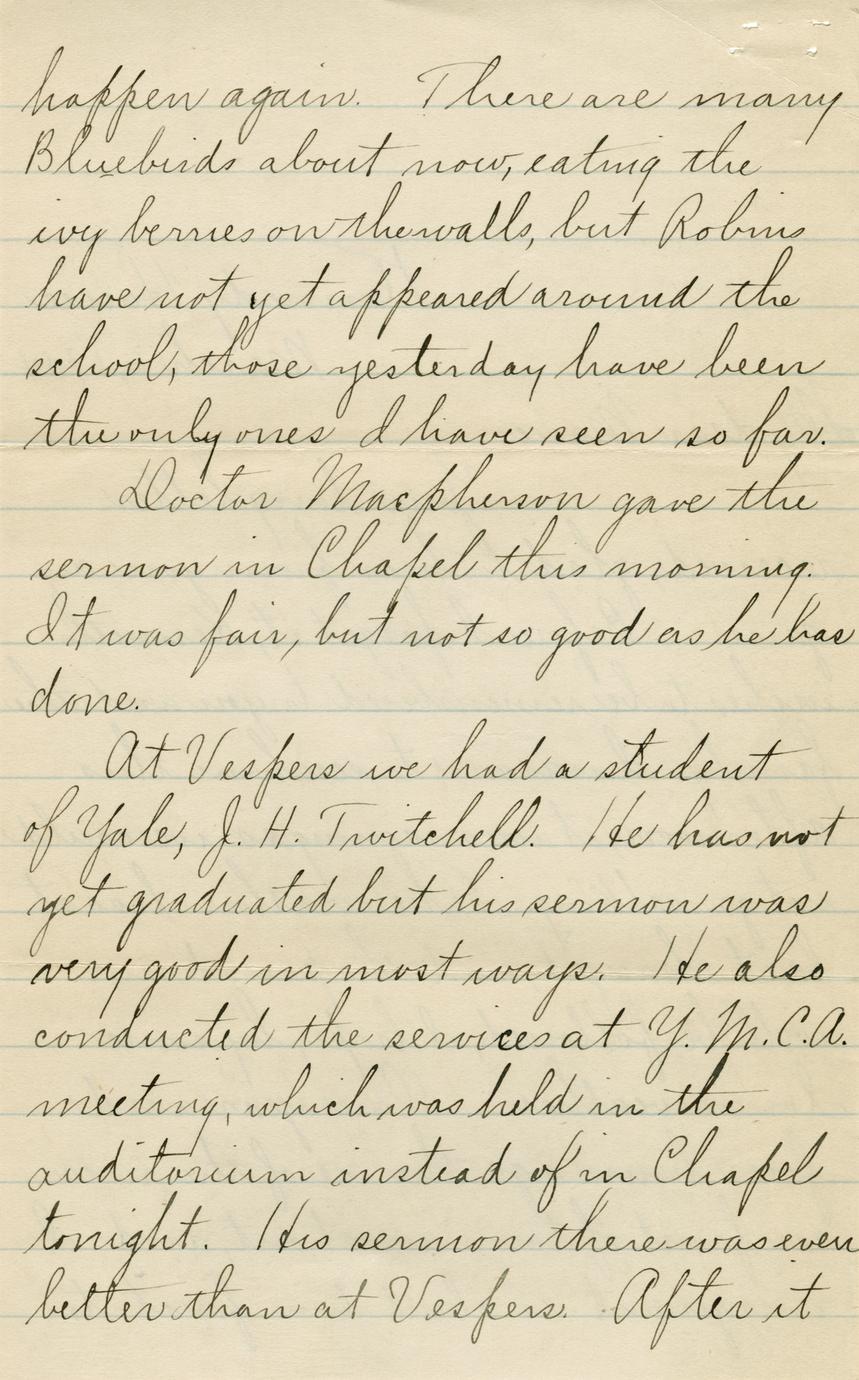 happen again. There are many
Bluebirds about now, eating the
ivy berries on the walls, but Robins
have not yet appeared around the
school, those yesterday have been
the only ones I have seen so far.
Doctor Macpherson gave the
sermon in Chapel this morning.
It was fair, but not so good as he has
done.
At Vespers we had a student
of Yale, J. H. Twitchell. He has not
yet graduated but his sermon was
very good in most ways. He also
conducted the services at Y. M. C. A.
meeting, which was held in the
auditorium instead of in Chapel
tonight. His sermon there was even
better than at Vespers. After it